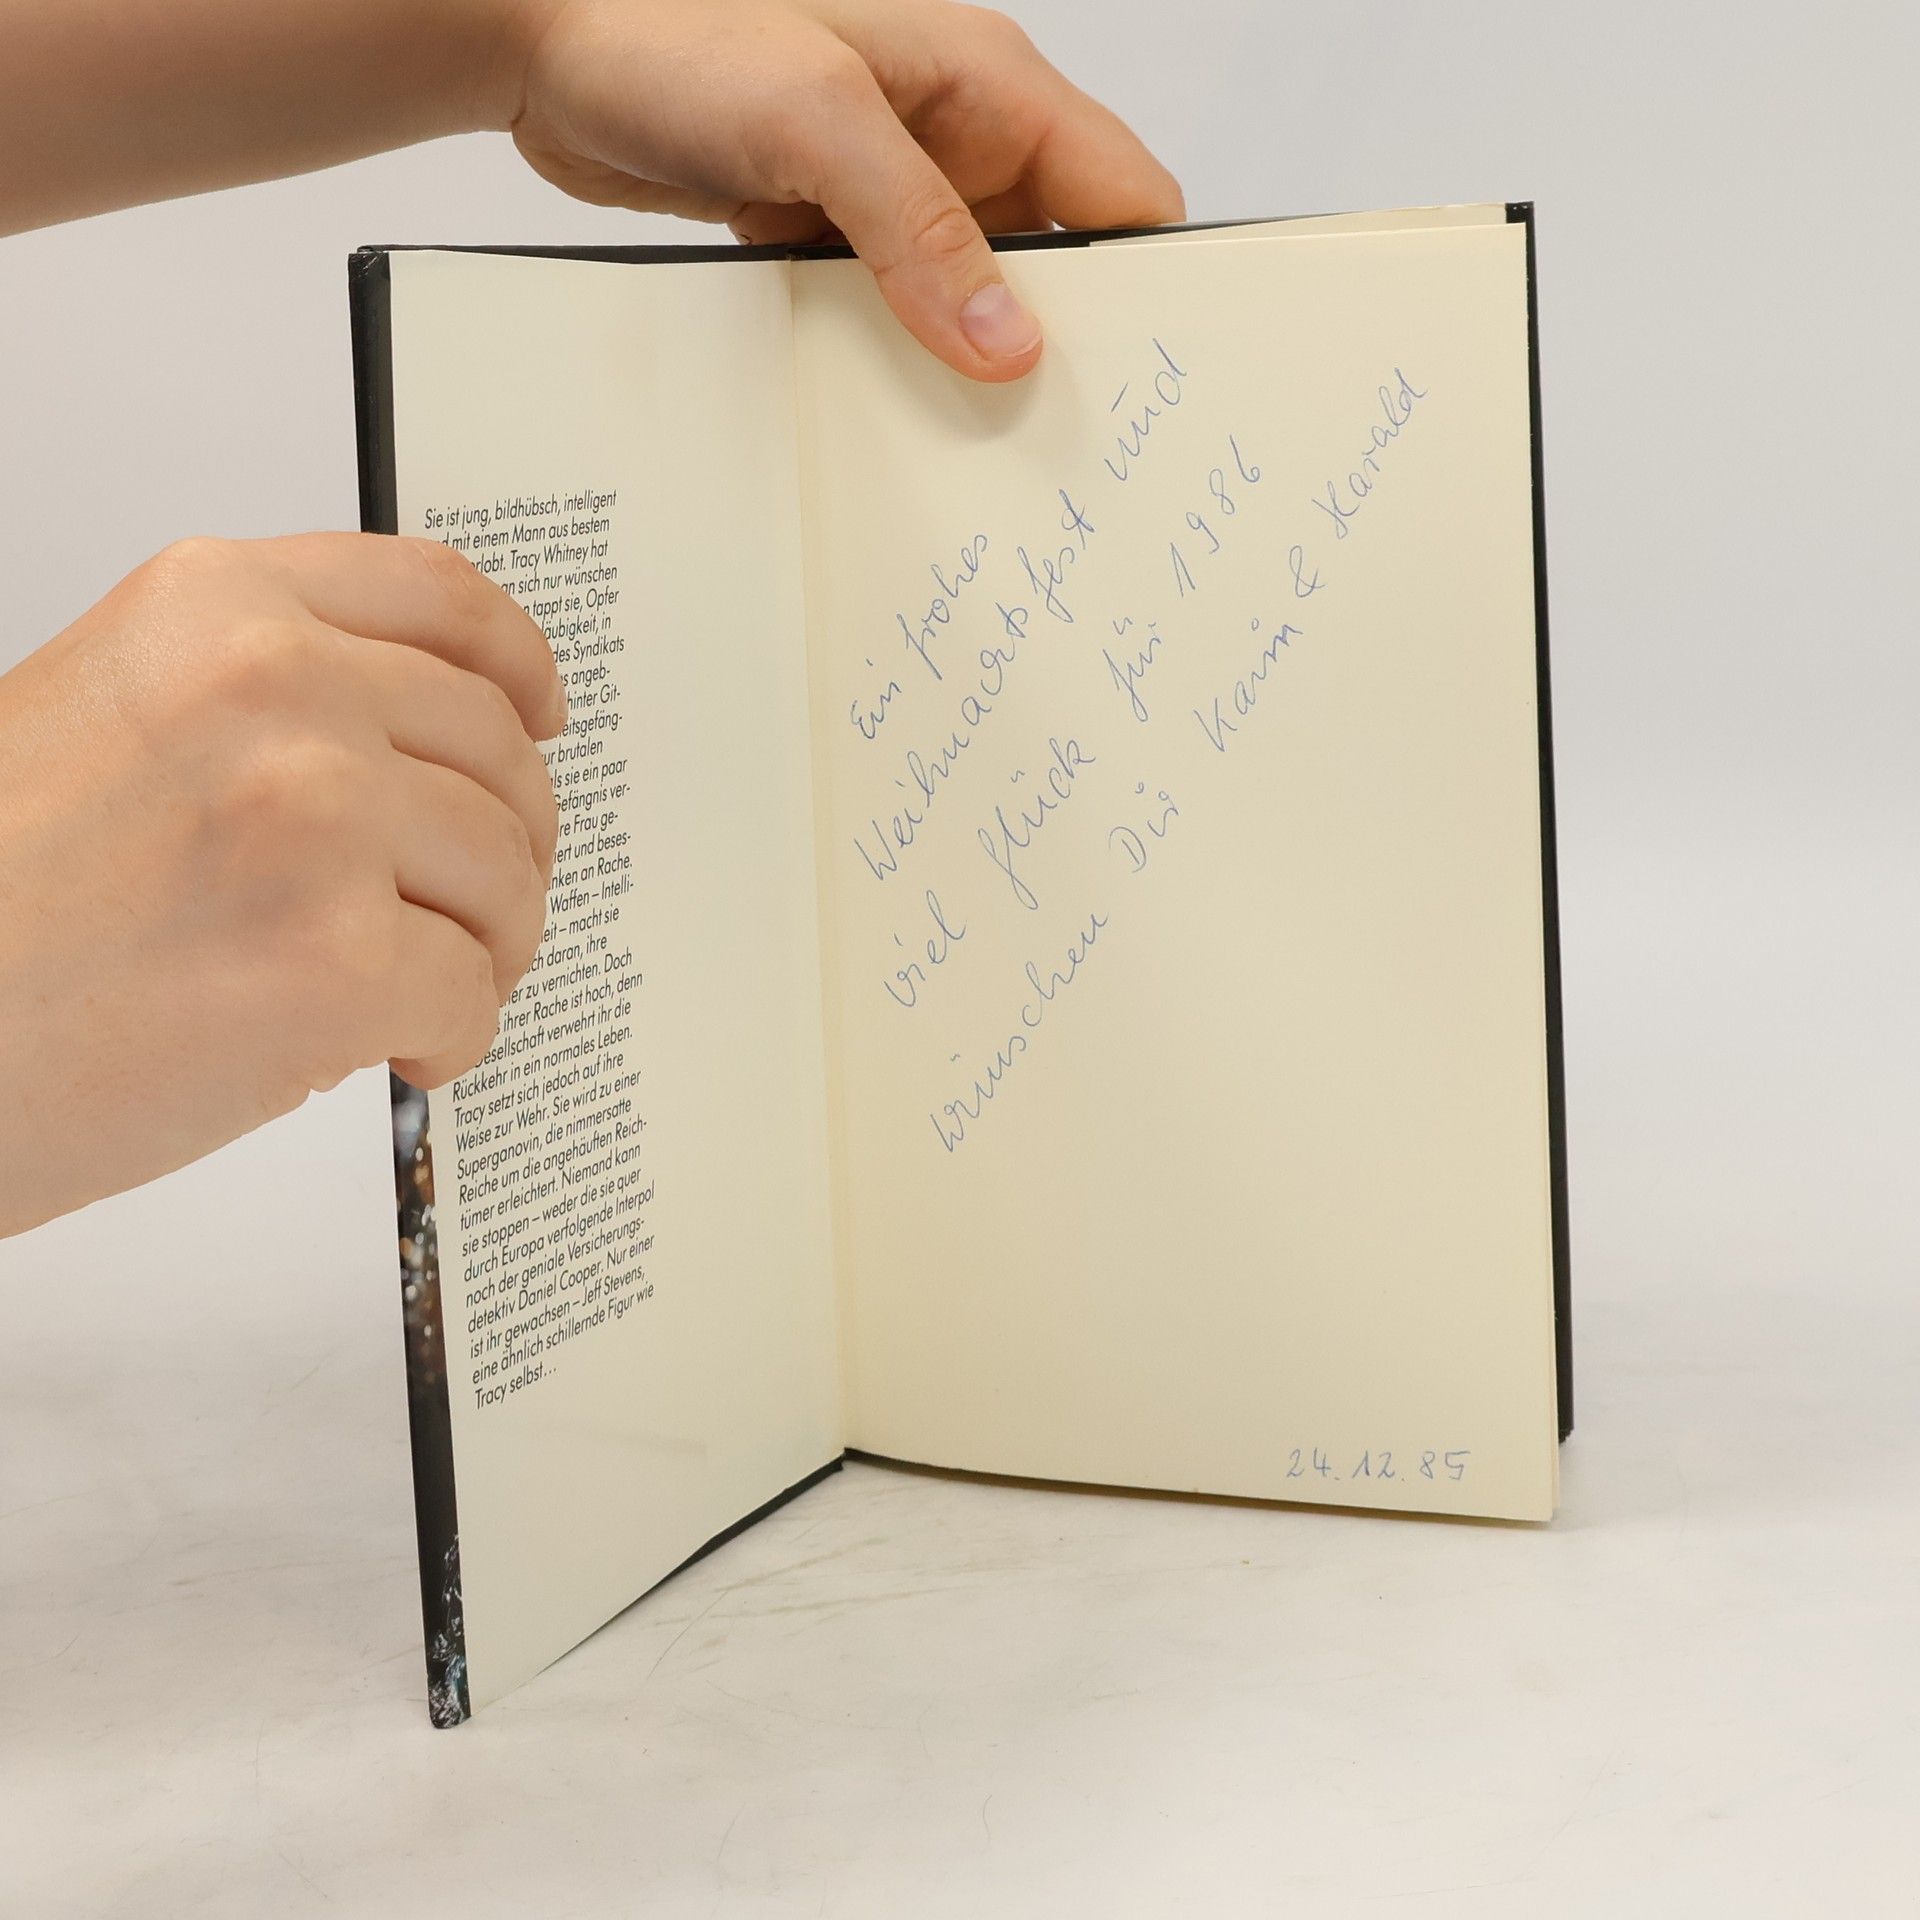 Sie ist jung, bildhübsch, intelligent
mit einem Mann aus bestem
rlobt. Tracy Whitney hat
an sich nur wünschen
tappt sie, Opfer
läubigkeit, in
des Syndikats
s angeb-
hinter Git-
eitsgefäng-
ur brutalen
ls sie ein paar
Gefängnis ver-
re Frau ge-
iert und beses-
nken an Rache.
Waffen – Intelli-
eit – macht sie
ch daran, ihre
er zu vernichten. Doch
s ihrer Rache ist hoch, denn
esellschaft verwehrt ihr die
Rückkehr in ein normales Leben.
Tracy setzt sich jedoch auf ihre
Weise zur Wehr. Sie wird zu einer
Superganovin, die nimmersatte
Reiche um die angehäuften Reich-
tümer erleichtert. Niemand kann
sie stoppen – weder die sie quer
durch Europa verfolgende Interpol
noch der geniale Versicherungs-
detektiv Daniel Cooper. Nur einer
ist ihr gewachsen – Jeff Stevens,
eine ähnlich schillernde Figur wie
Tracy selbst...
Ein frohes
Weihnachtsfest und
viel Glück für 1986
wünschen Dir Karin & Harald
24.12.85